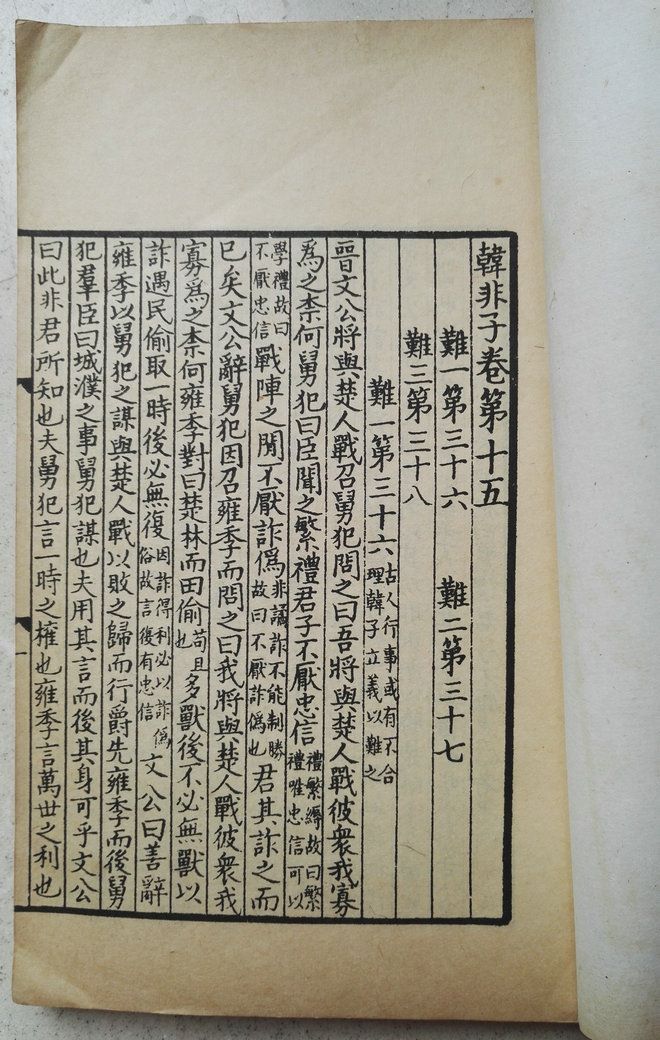 韓非子卷第十五
難一第三十六 難二第三十七
難三第三十八
難一第三十六古人行事或有不合理韓子立義以難之
晉文公將與楚人戰召舅犯問之曰吾將與楚人戰彼衆我寡
爲之柰何舅犯曰臣聞之繁禮君子不厭忠信禮繁縟故曰繁禮唯忠信可以
學禮故曰不厭忠信戰陣之閒不厭詐僞非譎詐不能制勝故曰不厭詐僞也君其詐之而
已矣文公辭舅犯因召雍季而問之曰我將與楚人戰彼衆我
寡爲之柰何雍季對曰焚林而田偷苟且也多獸後不必無獸以
詐遇民偷取一時後必無復因詐得利必以詐僞俗故言復有忠信文公曰善辭
雍季以舅犯之謀與楚人戰以敗之歸而行爵先雍季而後舅
犯羣臣曰城濮之事舅犯謀也夫用其言而後其身可乎文公
曰此非君所知也夫舅犯言一時之權也雍季言萬世之利也